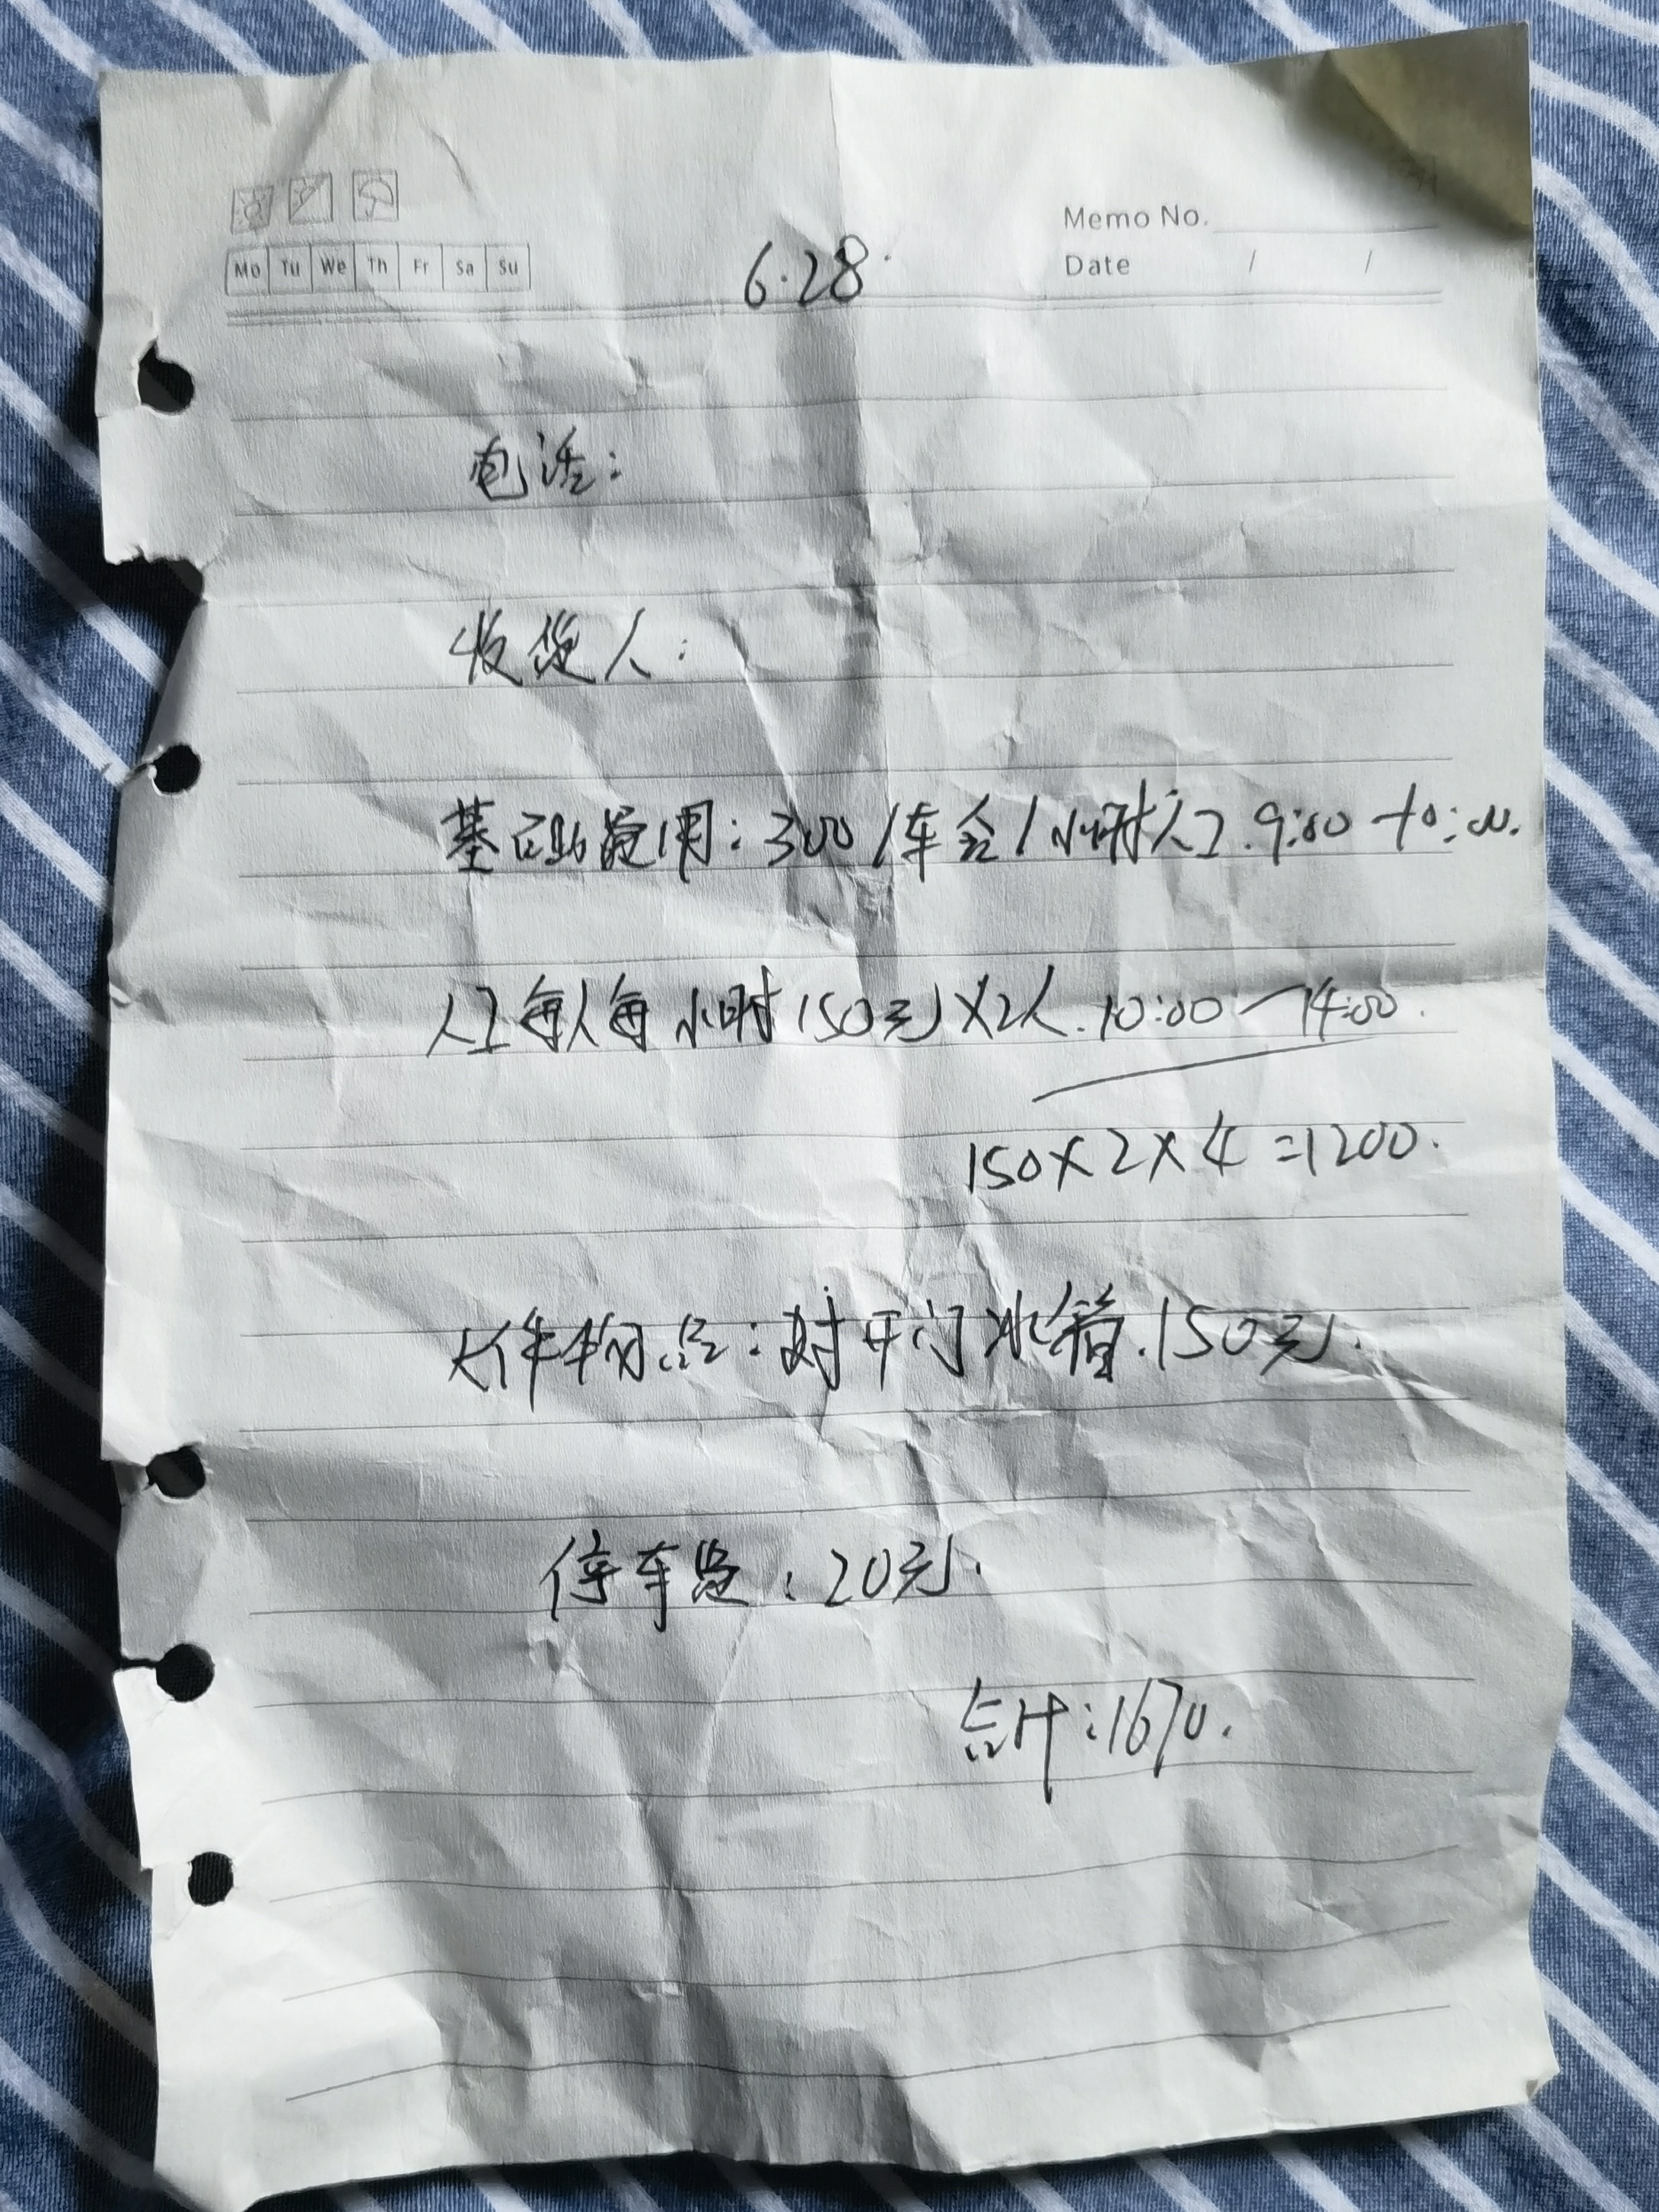 Memo No.
Mo Tu We Th Fr Sa Su
6.28.
Date / /
电话:
收货人:
基础费用:300/车含1小时人工.9:00-10:00.
人工每人每小时150元×2人.10:00-14:00.
150×2×4=1200.
大件物品:对开门冰箱.150元.
停车费:20元.
合计:1670.